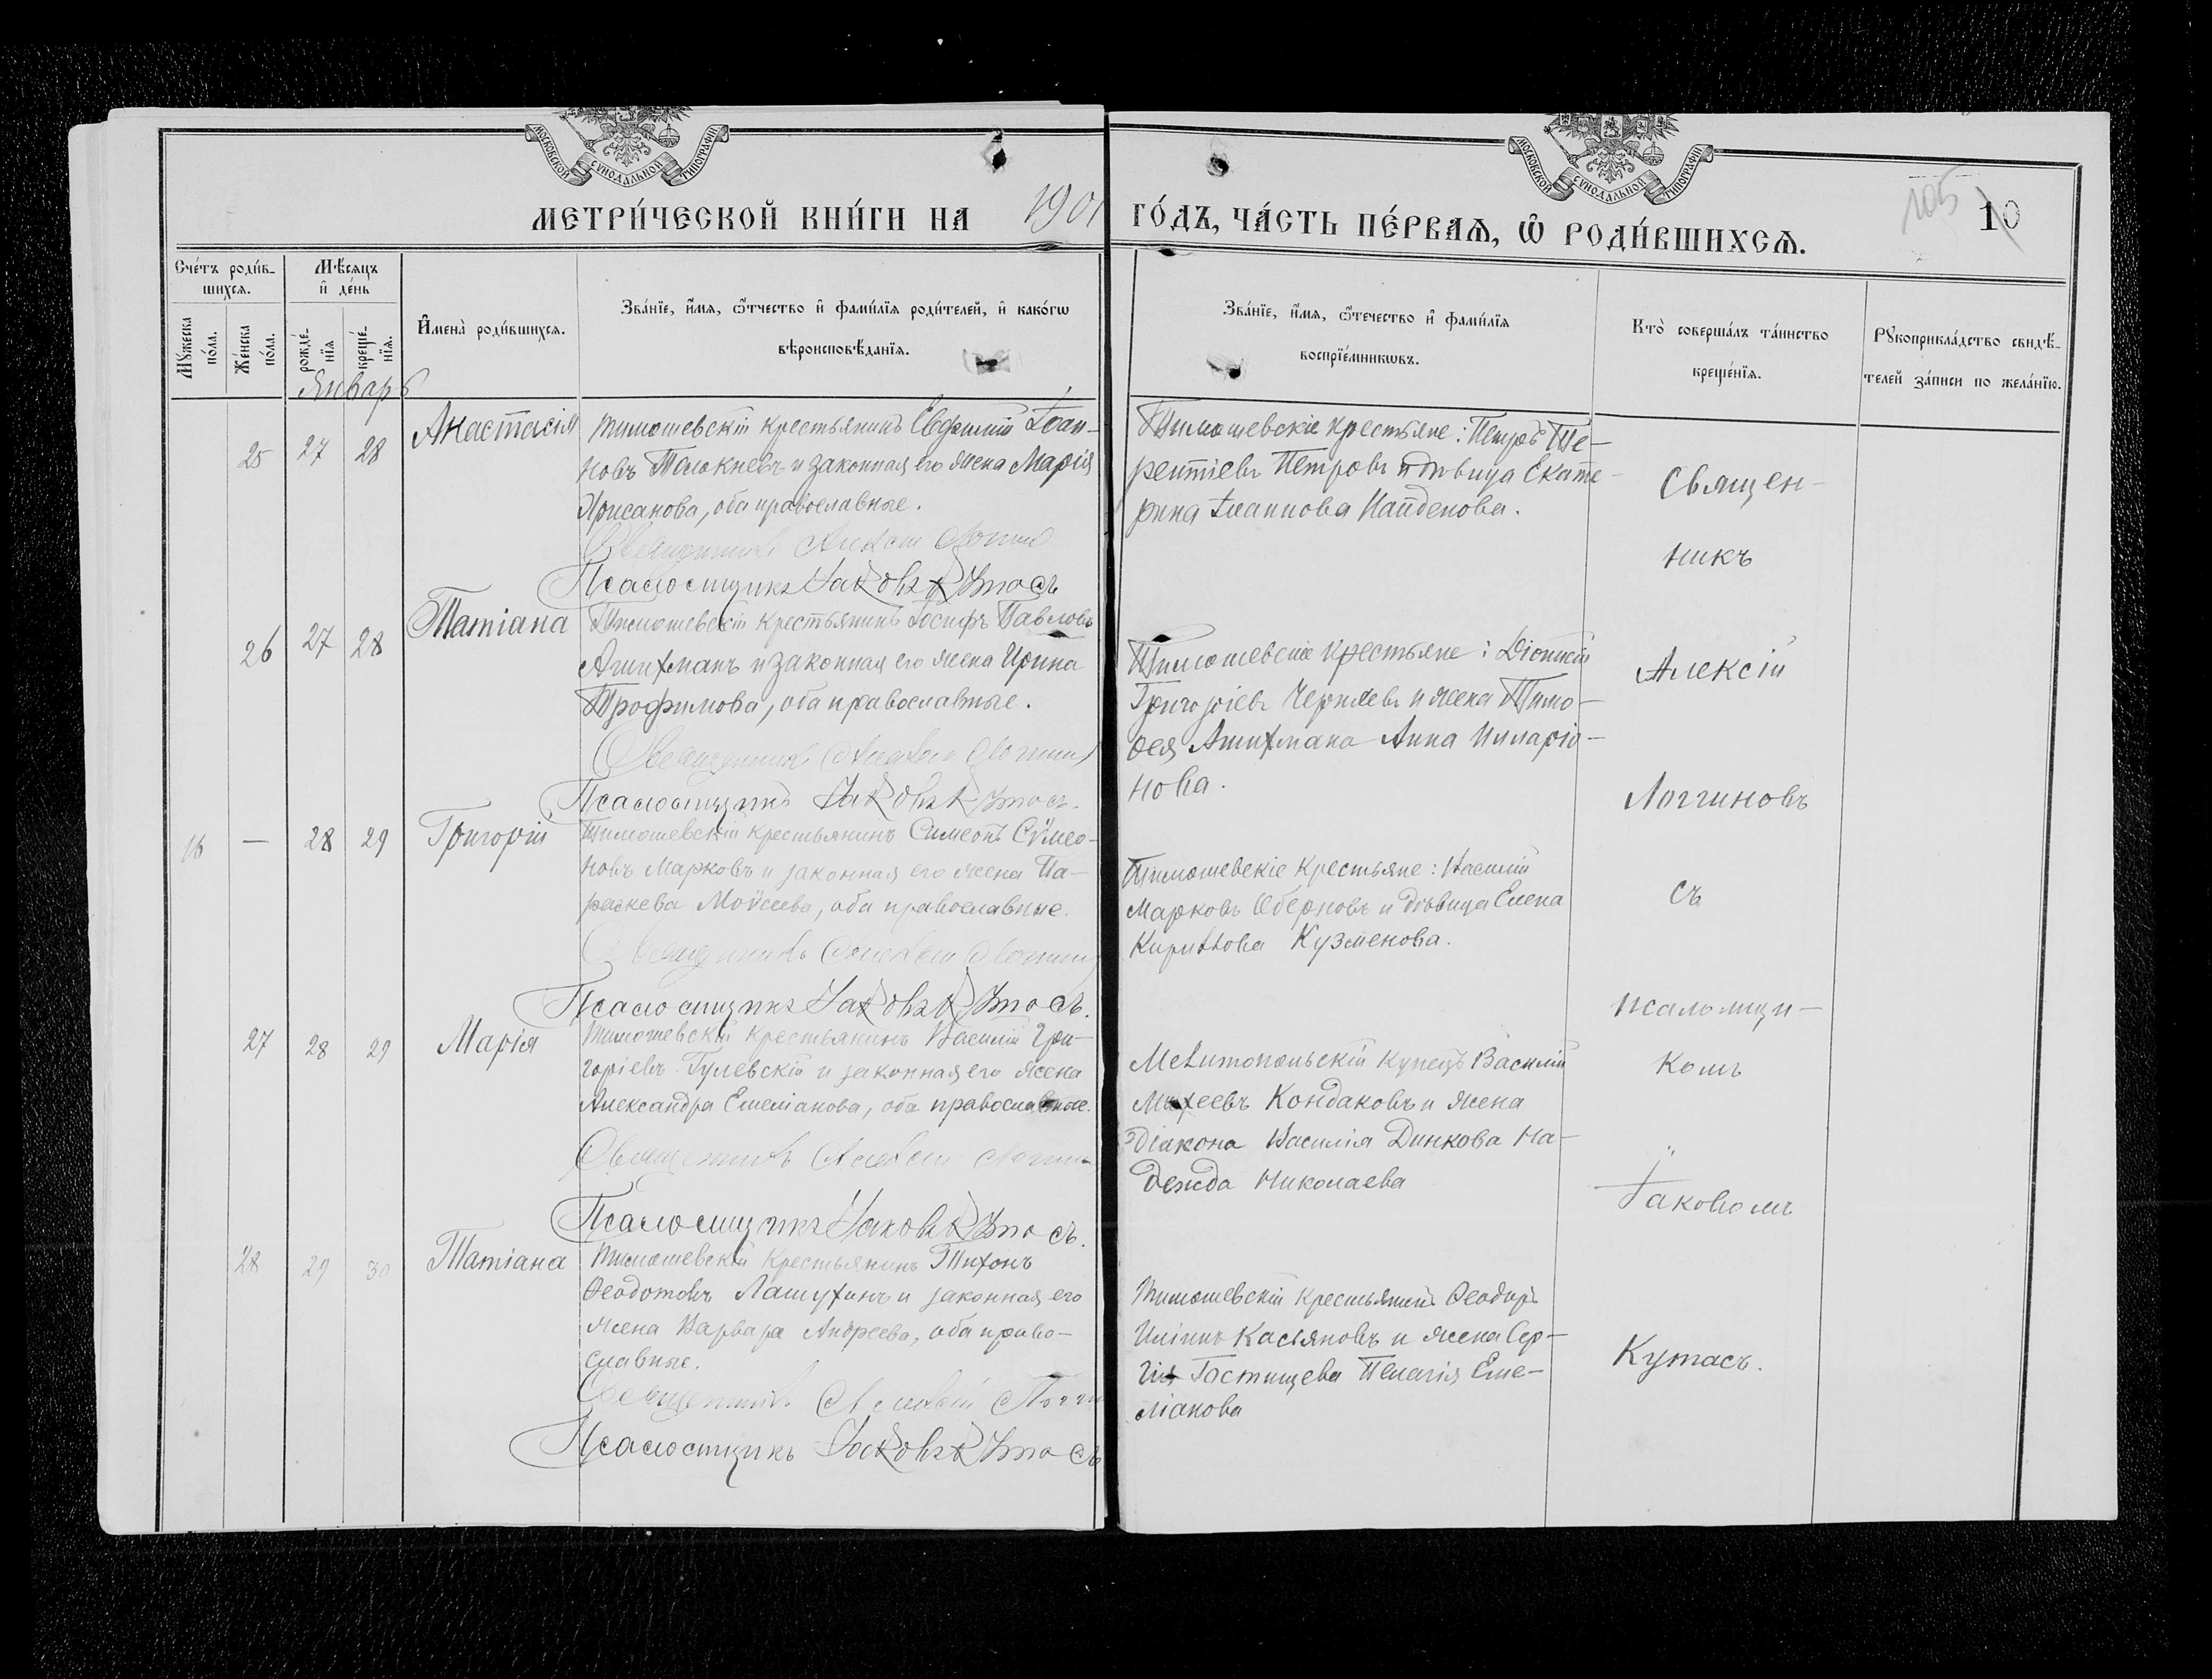 МОСКОВСКОЙ СУНОДАЛЬНОЙ ТИПОГРАФІИ
МОСКОВСКОЙ СУНОДАЛЬНОЙ ТИПОГРАФІИ
МЕТРИ́ЧЕСКОЙ КНИ́ГИ НА 1901
ГО́ДЪ, ЧА́СТЬ ПЕ́РВАѦ, Ѡ҆ РОДИ́ВШИХСѦ.
105
10
Сче́тъ роди́в-
шихсѧ.
Мꙋжеска по́ла.
Же́нска по́ла.
Мѣ́сѧцъ
и҆ де́нь
рожде́-
нїѧ
креще́-
нїѧ.
И҆мена̀ роди́вшихсѧ.
Зва́нїе, и҆́мѧ, ѻ҆́тчество и҆ фами́лїѧ роди́телей, и҆ како́гѡ
вѣроисповѣ́данїѧ.
Зва́нїе, и҆́мѧ, ѻ҆́течество и҆ фами́лїѧ
воспрїе́мникѡвъ.
Кто̀ соверша́лъ та́инство
креще́нїѧ.
Рꙋкоприкла́дство свидѣ́-
телей за́писи по жела́нїю.
Январь
25 27 28 Анастасія
Тимошевскій крестьянинъ Евфимій Іоан-
новъ Толокневъ и законная его жена Марія
Хрисанова, оба православные.
Священникъ Алексій
Псаломщикъ Іаковъ Кутасъ
Тимошевскіе крестьяне: Петръ Те-
рентіевъ Петровъ и дѣвица Екате-
рина Іоаннова Найденова.
26 27 28 Татіана
Тимошевскій крестьянинъ Іосифъ Павловъ
Ашихманъ и законная его жена Ирина
Трофимова, оба православные.
Священникъ Алексій
Псаломщикъ Іаковъ Кутасъ.
Тимошевскіе крестьяне: Діонисій
Григоріевъ Черняевъ и жена Тимо-
ѳея Ашихмана Анна Илларіо-
нова.
16 — 28 29 Григорій
Тимошевскій крестьянинъ Симеонъ Сѵмео-
новъ Марковъ и законная его жена Па-
раскева Моѵсеева, оба православные.
Священникъ Алексій
Псаломщикъ Іаковъ Кутасъ.
Тимошевскіе крестьяне: Василій
Марковъ Оберновъ и дѣвица Елена
Кириллова Кузменова.
27 28 29 Марія
Тимошевскій крестьянинъ Василій Гри-
горіевъ Гулевскій и законная его жена
Александра Емеліанова, оба православные.
Священникъ Алексій
Псаломщикъ Іаковъ Кутасъ.
Мелитопольскій купецъ Василій
Михеевъ Кондаковъ и жена
діакона Василія Динкова На-
дежда Николаева
28 29 30 Татіана
Тимошевскій крестьянинъ Тихонъ
Ѳеодотовъ Лашухинъ и законная его
жена Варвара Андреева, оба право-
славные.
Священникъ Алексій
Псаломщикъ Іаковъ Кутасъ
Тимошевскій крестьянинъ Ѳеодоръ
Иліинъ Касьяновъ и жена Сер-
гія Гостищева Пелагія Еме-
ліанова
Священ-
никъ
Алексій
Логгиновъ
съ
псаломщи-
комъ
Іаковомъ
Кутасъ.